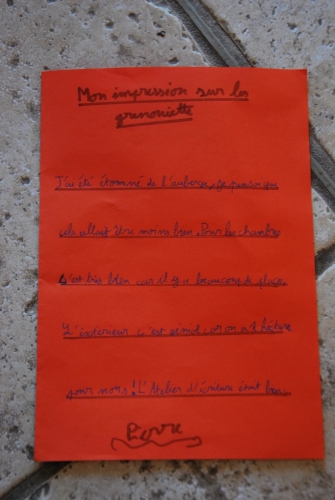 Mon impression sur les
grenouiette
J'ai été étonné de l'auberge, je pensai que
cela allait être moins bien. Pour les chambre
c'est très bien car il y a beaucoups de place.
L'extérieur c'est génial car on a d
pour nous ! L'Atelier d'écriture était bien.
Pierre